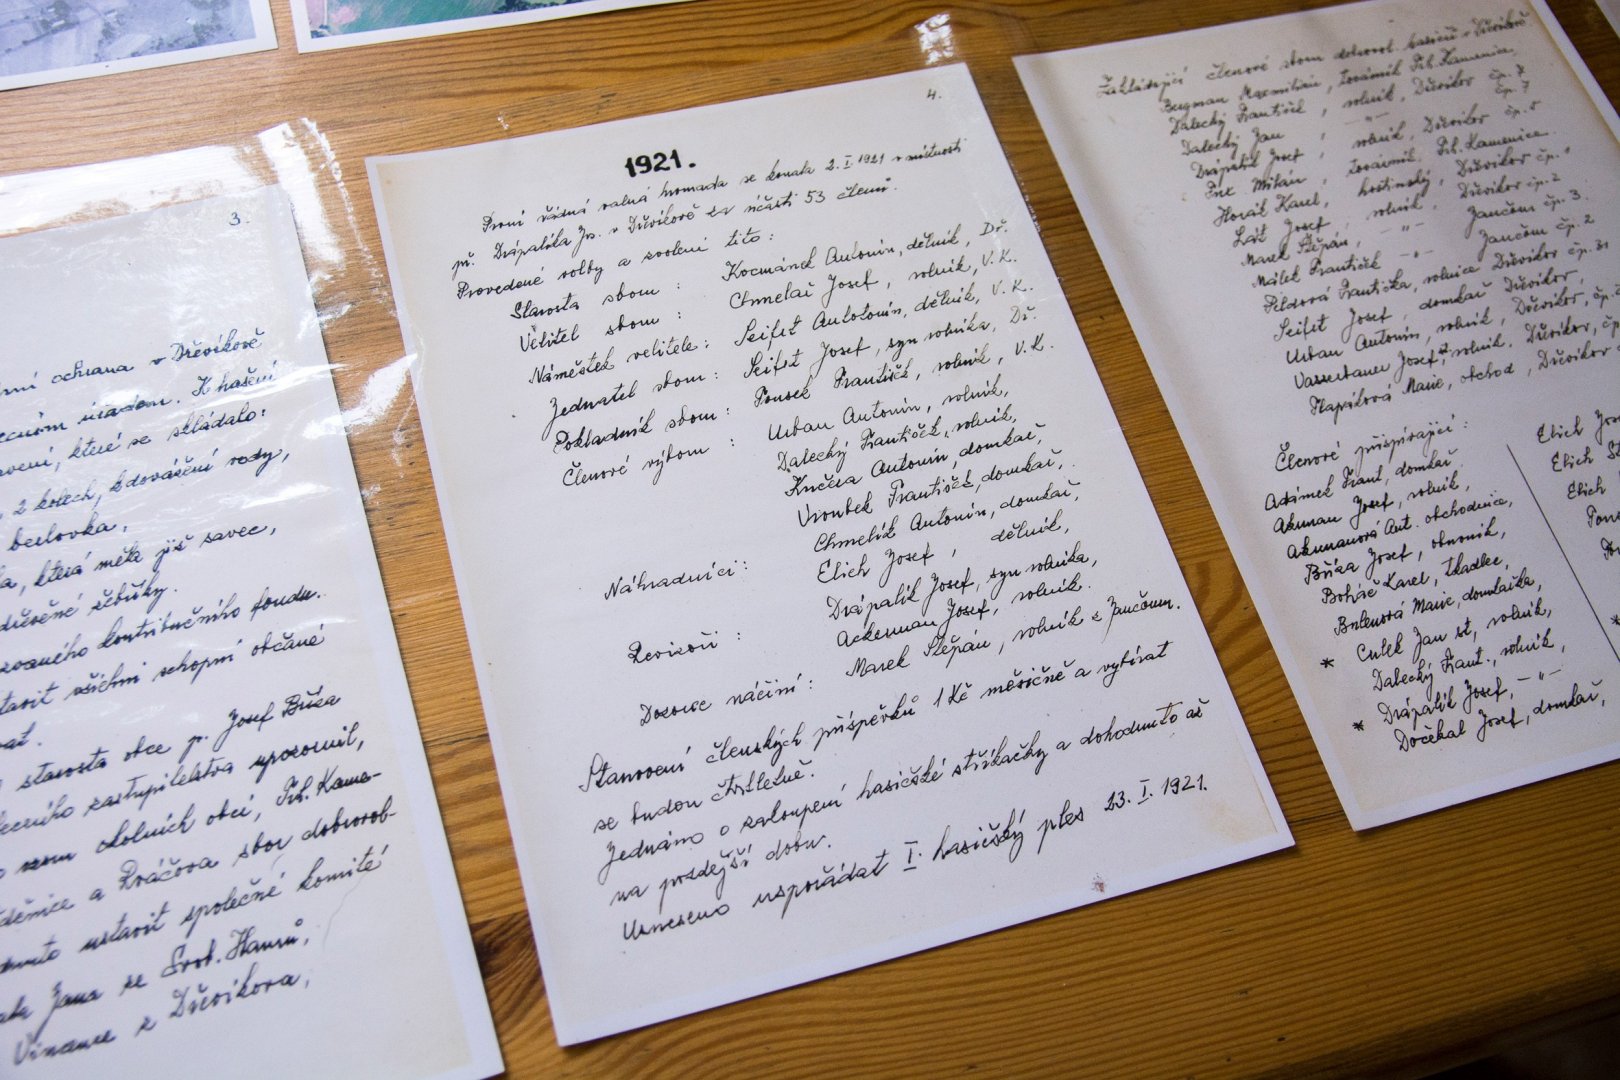 3.
ochrana v Dřevíkově
úřadem. K hašení
které se skládalo:
2 kolech, k dovážení vody,
berlovka,
která měla již savec,
žebříky.
kontribučního fondu.
všichni schopní občané
starosta obce p. Josef Bůza
zastupitelstva upozornil,
okolních obcí, Trh. Kame-
a Rváčova sbor dobrovol-
ustavit společné komité
Jana ze Svob. Hamrů,
z Dřevíkova,
4.
1921.
První řádná valná hromada se konala 2. I. 1921 v místnosti
př. Drápalíka Jos. v Dřevíkově za účasti 53 členů.
Provedené volby a zvoleni tito:
Starosta sboru : Kocmánek Antonín, dělník, Dř.
Velitel sboru : Chmelař Josef, rolník, V. K.
Náměstek velitele: Seifrt Antotonín, dělník, V. K.
Jednatel sboru : Seifrt Josef, syn rolníka, Dř.
Pokladník sboru : Pousek František, rolník, V. K.
Členové výboru : Urban Antonín, rolník,
Dalecký František, rolník,
Kučera Antonín, domkař,
Vroubek František, domkař,
Náhradníci: Chmelík Antonín, domkař,
Elich Josef, dělník,
Revizoři : Drápalík Josef, syn rolníka,
Ackerman Josef, rolník.
Dozorce náčiní: Marek Štěpán, rolník z Jančouru.
Stanovení členských příspěvků 1 Kč měsíčně a vybírat
se budou čtvrtletně.
Jednáno o zakoupení hasičské stříkačky a dohodnuto až
na pozdější dobu.
Usneseno uspořádat I. hasičský ples 23. I. 1921.
Zakládající členové sboru dobrovol. hasičů v Dřevíkově
Bergman Maxmilián, továrník, Trh. Kamenice,
Dalecký František, rolník, Dřevíkov čp. 7
Dalecký Jan, -"-
Drápalík Josef, rolník, Dřevíkov čp. 5
Fux Milán, továrník, Trh. Kamenice.
Horák Karel, hostinský, Dřevíkov čp. 1
Láž Josef, rolník, Dřevíkov čp. 2
Marek Štěpán, -"- Jančour čp. 3.
Málek František -"- Jančour čp. 2
Peldová Františka, rolnice Dřevíkov čp. 31
Seifrt Josef, domkař Dřevíkov,
Urban Antonín, rolník, Dřevíkov,
Vasserbauer Josef st, rolník, Dřevíkov,
Hapalová Marie, obchod, Dřevíkov
Členové přispívající:
Adámek Frant, domkař
Akrman Josef, rolník,
Akrmanová Ant. obchodnice,
Bůza Josef, obuvník,
Boháč Karel, tkadlec,
Bulenová Marie, domkářka,
* Culek Jan st, rolník,
Dalecký Frant., rolník,
* Drápalík Josef, -"-
Dočekal Josef, domkař,
Elich
Elich
Elich